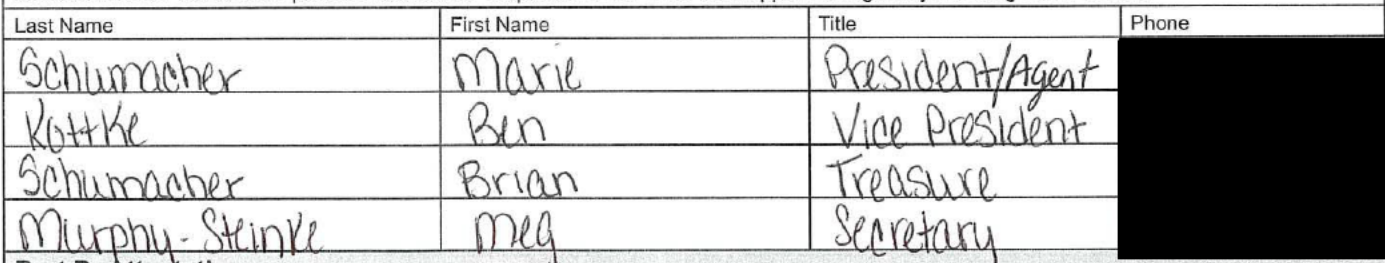 Last Name First Name Title Phone
Schumacher Marie President/Agent
Kottke Ben Vice President
Schumacher Brian Treasure
Murphy-Steinke Meg Secretary